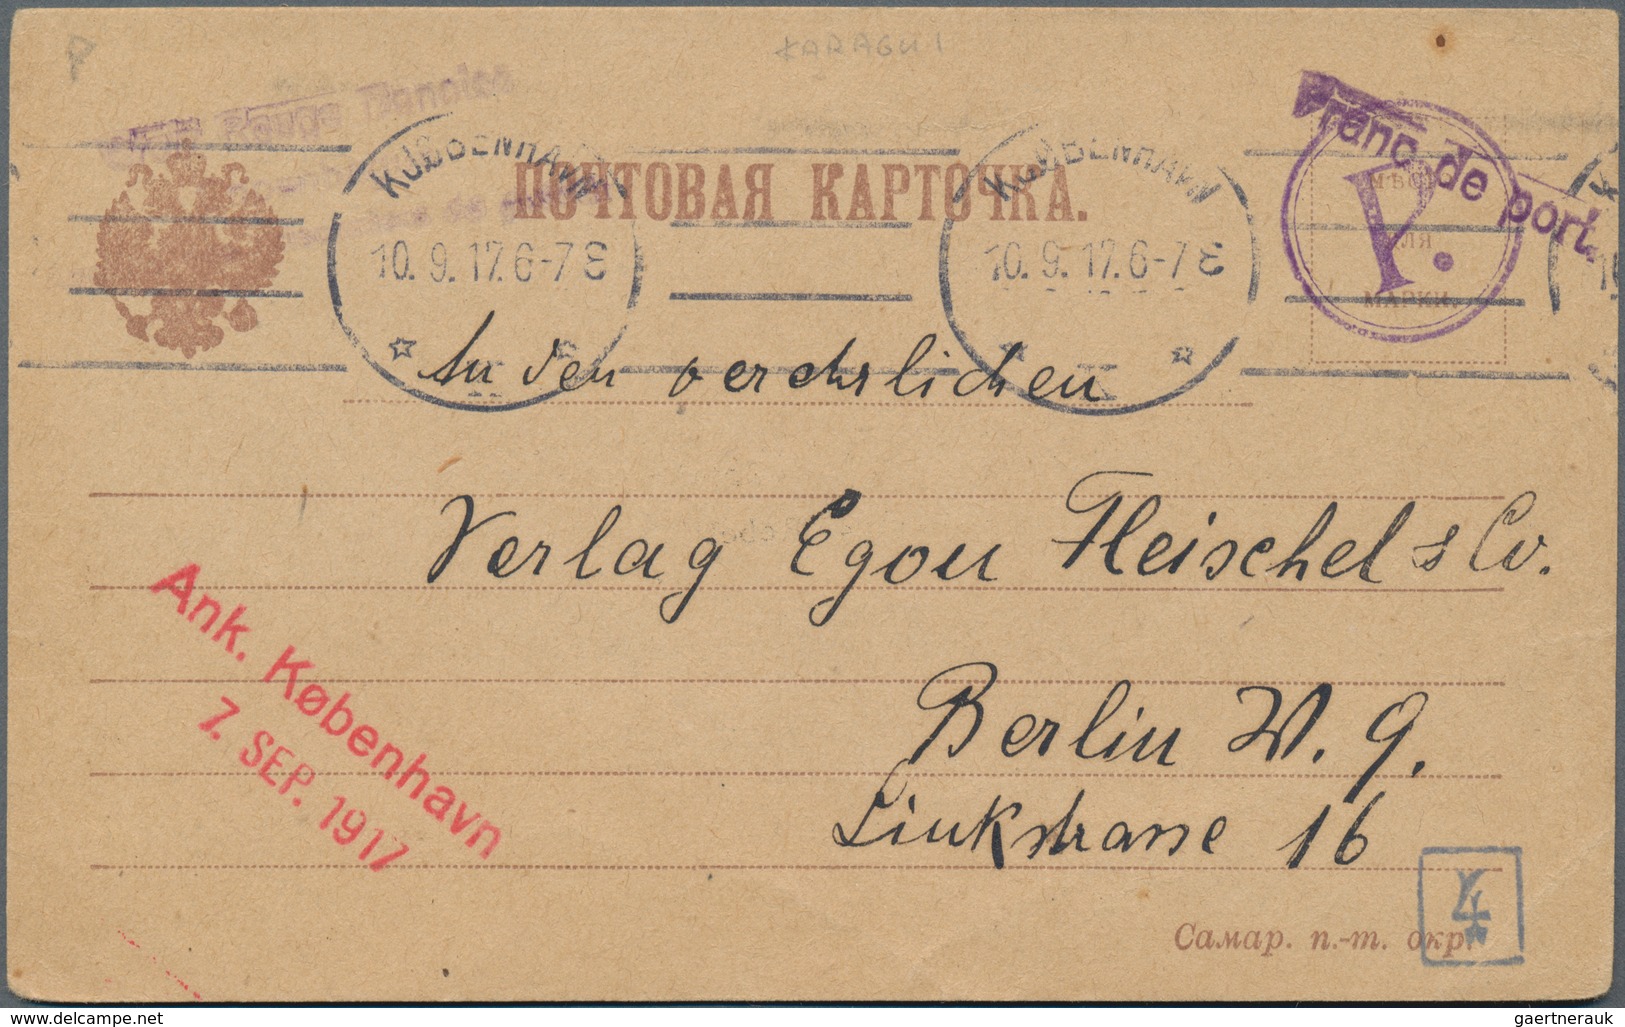 KARAGUI
Rouge Danoise
ПОЧТОВАЯ КАРТОЧКА.
KJØBENHAVN
10. 9. 17. 6-7 E
KJØBENHAVN
10. 9. 17. 6-7 E
Franc de port.
МѢСТО
ДЛЯ
МАРКИ.
Y.
An den verehrlichen
Verlag Egon Fleischel & Co.
Berlin W. 9.
Linkstrasse 16
Ank. København
7. SEP. 1917
Самар. п.-т. окр.
4
www.delcampe.net
gaertnerauk